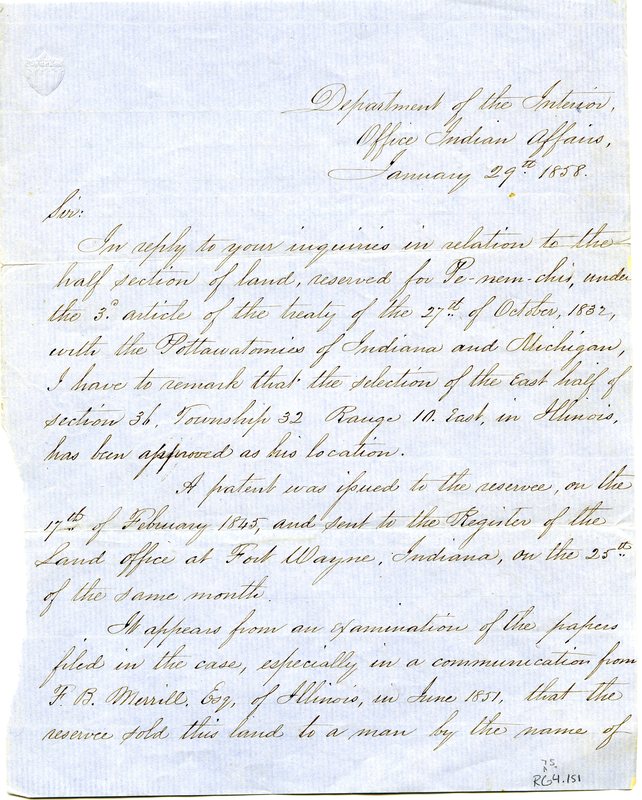 Department of the Interior,
Office Indian Affairs,
January 29th 1858.
Sir:
In reply to your inquiries in relation to the
half section of land, reserved for Pe-nem-chis, under
the 3d article of the treaty of the 27th of October, 1832,
with the Pottawatomies of Indiana and Michigan,
I have to remark that the selection of the East half of
section 36, Township 32 Range 10. East, in Illinois,
has been approved as his location.
A patent was issued to the reservee, on the
17th of February 1845, and sent to the Register of the
Land office at Fort Wayne, Indiana, on the 25th
of the same month.
It appears from an examination of the papers
filed in the case, especially in a communication from
F. B. Merrill, Esq, of Illinois, in June 1851, that the
reservee sold this land to a man by the name of
75
RG4.151